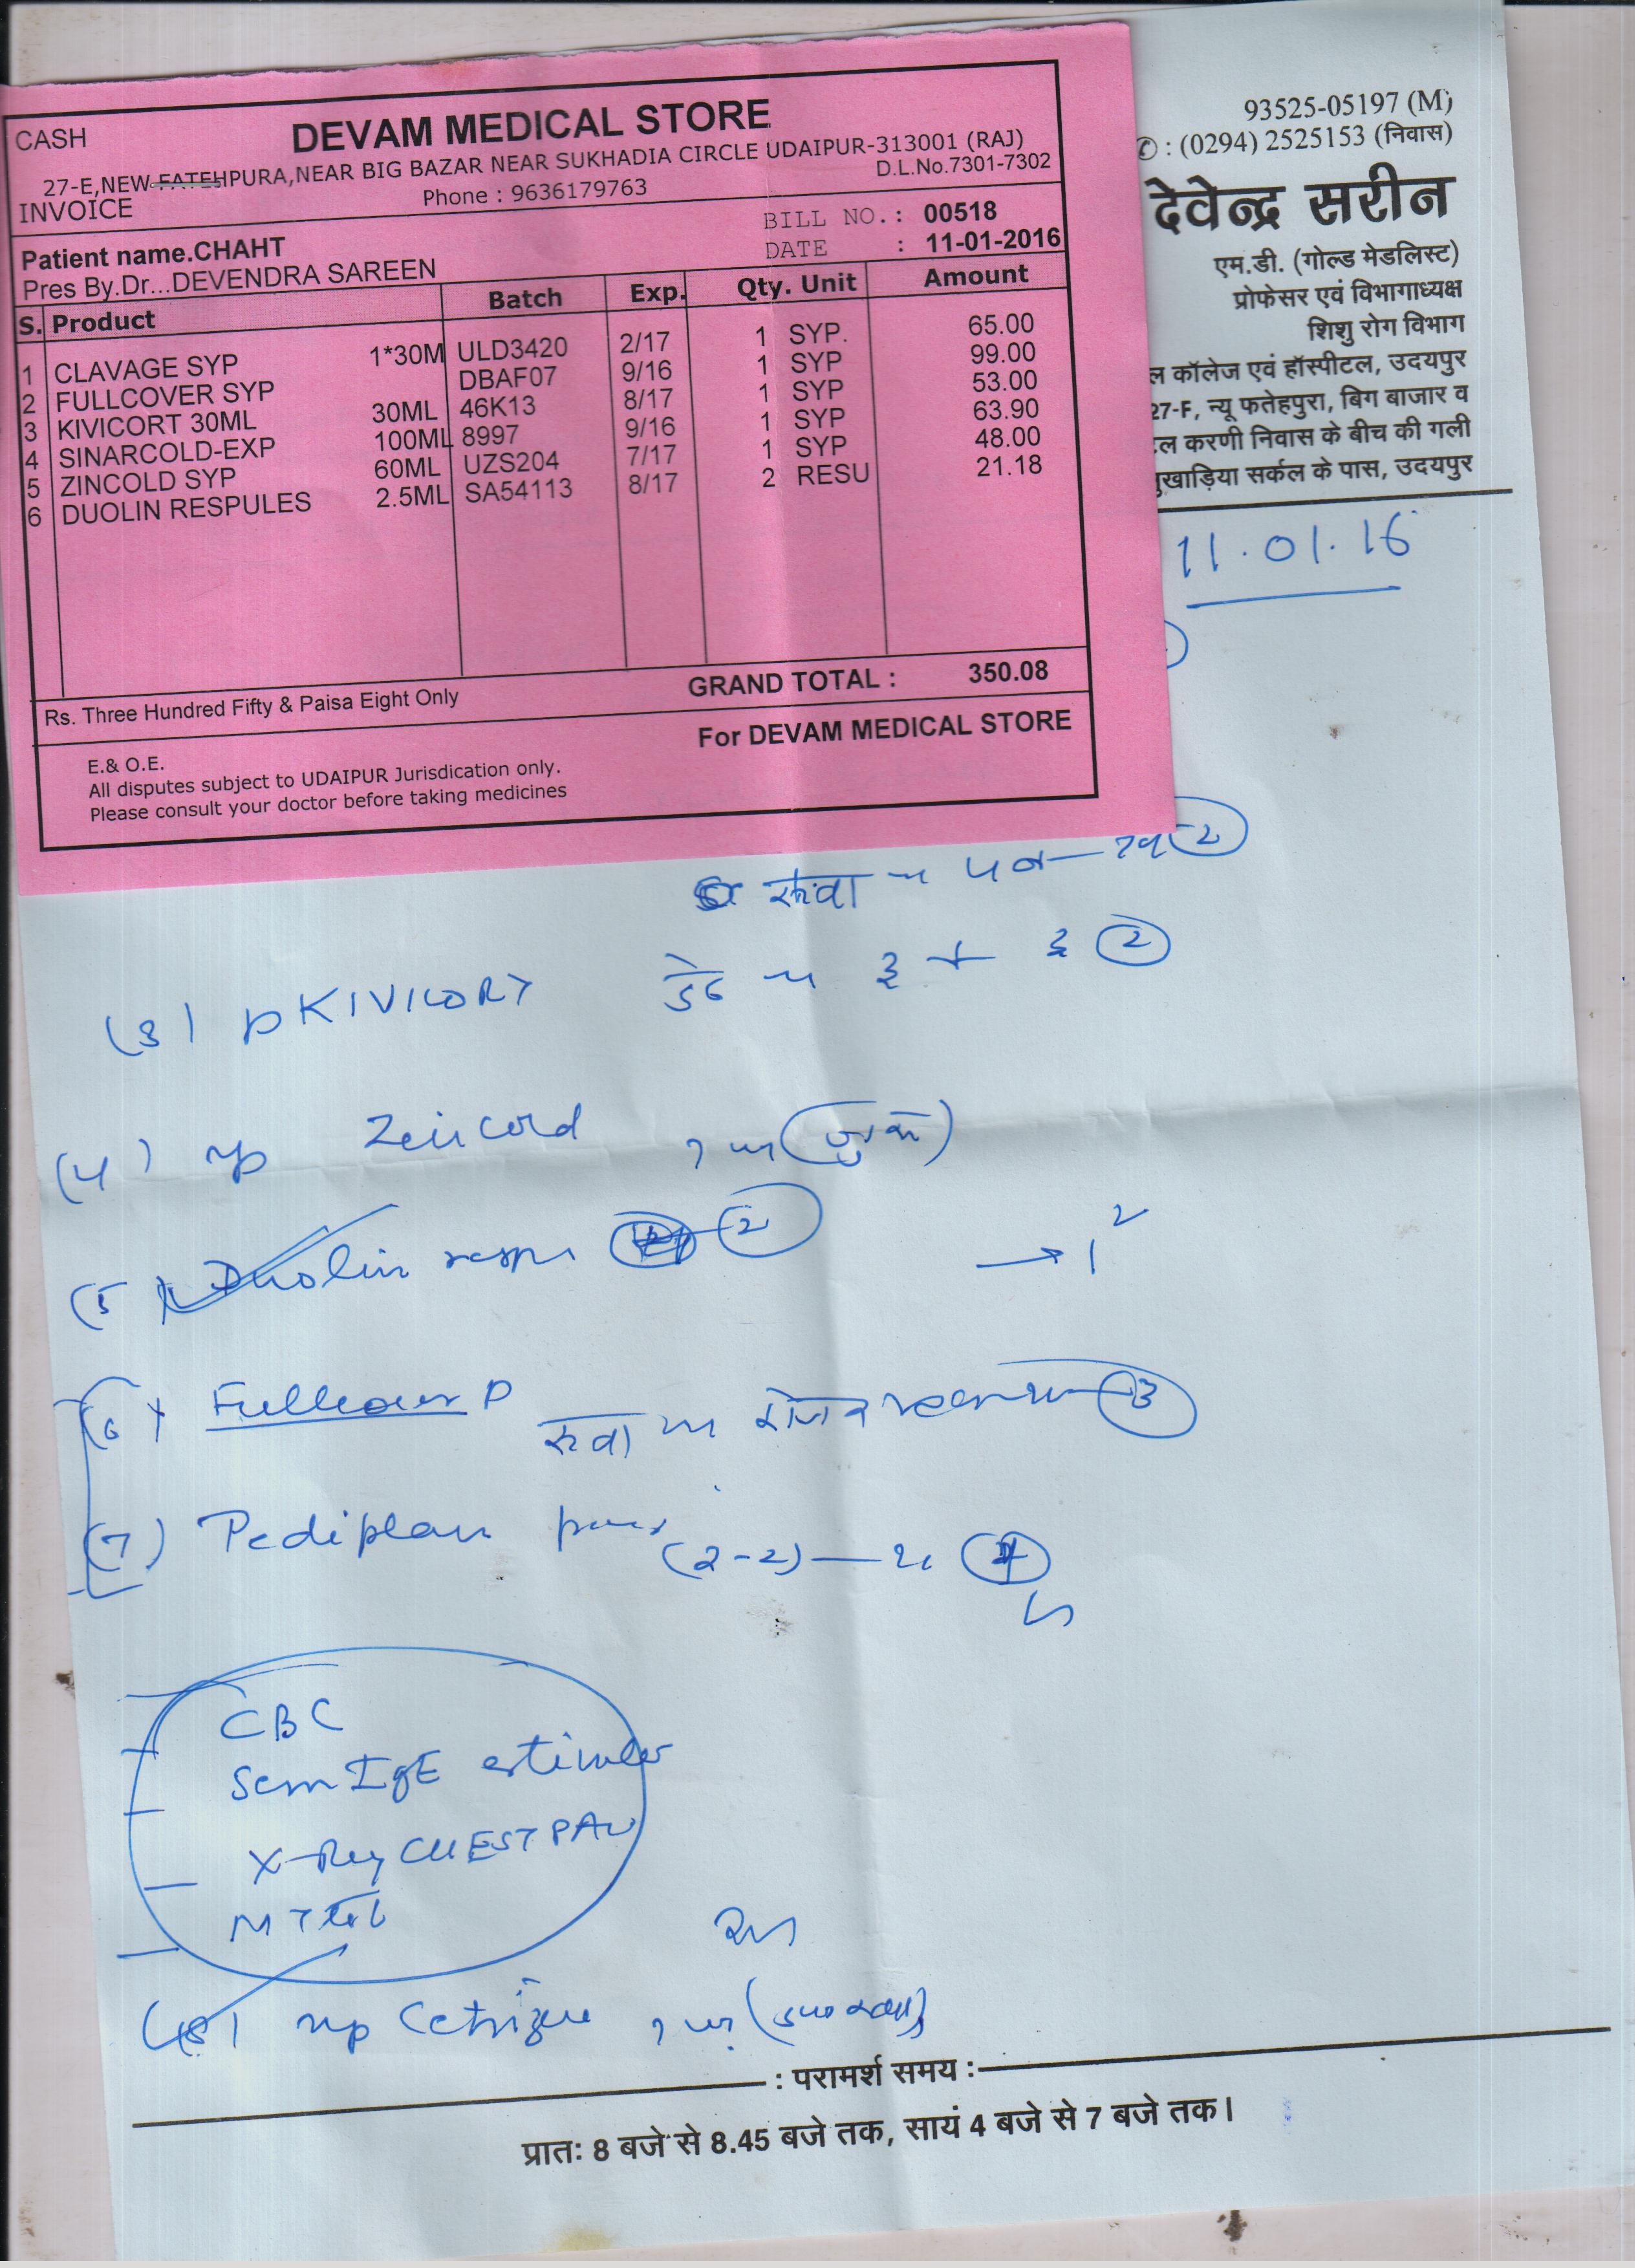 CASH
DEVAM MEDICAL STORE
27-E,NEW FATEHPURA,NEAR BIG BAZAR NEAR SUKHADIA CIRCLE UDAIPUR-313001 (RAJ)
INVOICE
Phone : 9636179763
D.L.No.7301-7302
Patient name.CHAHT
BILL NO.: 00518
Pres By.Dr...DEVENDRA SAREEN
DATE : 11-01-2016
S. Product Batch Exp. Qty. Unit Amount
1 CLAVAGE SYP 1*30M ULD3420 2/17 1 SYP. 65.00
2 FULLCOVER SYP DBAF07 9/16 1 SYP 99.00
3 KIVICORT 30ML 30ML 46K13 8/17 1 SYP 53.00
4 SINARCOLD-EXP 100ML 8997 9/16 1 SYP 63.90
5 ZINCOLD SYP 60ML UZS204 7/17 1 SYP 48.00
6 DUOLIN RESPULES 2.5ML SA54113 8/17 2 RESU 21.18
Rs. Three Hundred Fifty & Paisa Eight Only
GRAND TOTAL : 350.08
For DEVAM MEDICAL STORE
E.& O.E.
All disputes subject to UDAIPUR Jurisdication only.
Please consult your doctor before taking medicines
93525-05197 (M)
✆ : (0294) 2525153 (निवास)
देवेन्द्र सरीन
एम.डी. (गोल्ड मेडलिस्ट)
प्रोफेसर एवं विभागाध्यक्ष
शिशु रोग विभाग
ल कॉलेज एवं हॉस्पीटल, उदयपुर
27-F, न्यू फतेहपुरा, बिग बाजार व
टल करणी निवास के बीच की गली
सुखाड़िया सर्कल के पास, उदयपुर
11.01.16
2
(3) KIVICORT 2
(4) Zincold
(5) Duolin resp. 2 → 1
(6) Fullcover P 3
(7) Pediplan (2-2)
CBC
Serum IgE
X-Ray CHEST PA
(8) Cetrizine
: परामर्श समय :
प्रातः 8 बजे से 8.45 बजे तक, सायं 4 बजे से 7 बजे तक।